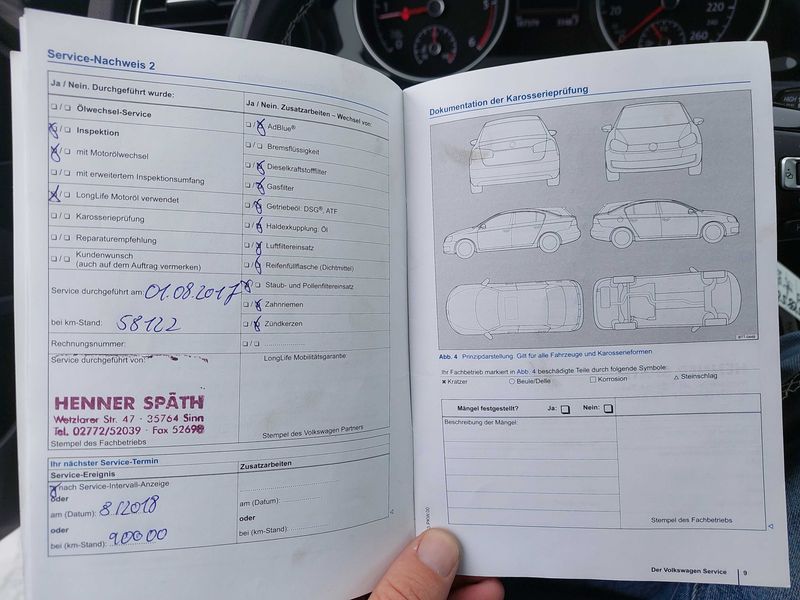 Service-Nachweis 2
Ja / Nein. Durchgeführt wurde:
Ölwechsel-Service
Inspektion
mit Motorölwechsel
mit erweitertem Inspektionsumfang
LongLife Motoröl verwendet
Karosserieprüfung
Reparaturempfehlung
Kundenwunsch
(auch auf dem Auftrag vermerken)
Service durchgeführt am: 01.08.2017
bei km-Stand: 58122
Rechnungsnummer:
Service durchgeführt von:
HENNER SPÄTH
Wetzlarer Str. 47 · 35764 Sinn
Tel. 02772/52039 · Fax 52698
Stempel des Fachbetriebs
Ja / Nein. Zusatzarbeiten – Wechsel von:
AdBlue®
Bremsflüssigkeit
Dieselkraftstofffilter
Gasfilter
Getriebeöl: DSG®, ATF
Haldexkupplung: Öl
Luftfiltereinsatz
Reifenfüllflasche (Dichtmittel)
Staub- und Pollenfiltereinsatz
Zahnriemen
Zündkerzen
LongLife Mobilitätsgarantie
Stempel des Volkswagen Partners
Ihr nächster Service-Termin
Service-Ereignis
nach Service-Intervall-Anzeige
oder
am (Datum): 8/2018
oder
bei (km-Stand): 90000
Zusatzarbeiten
am (Datum):
oder
bei (km-Stand):
Dokumentation der Karosserieprüfung
Abb. 4 Prinzipdarstellung. Gilt für alle Fahrzeuge und Karosserieformen
Ihr Fachbetrieb markiert in Abb. 4 beschädigte Teile durch folgende Symbole:
Kratzer
Beule/Delle
Korrosion
Steinschlag
Mängel festgestellt? Ja: Nein:
Beschreibung der Mängel:
Stempel des Fachbetriebs
Der Volkswagen Service 9
220
240
260